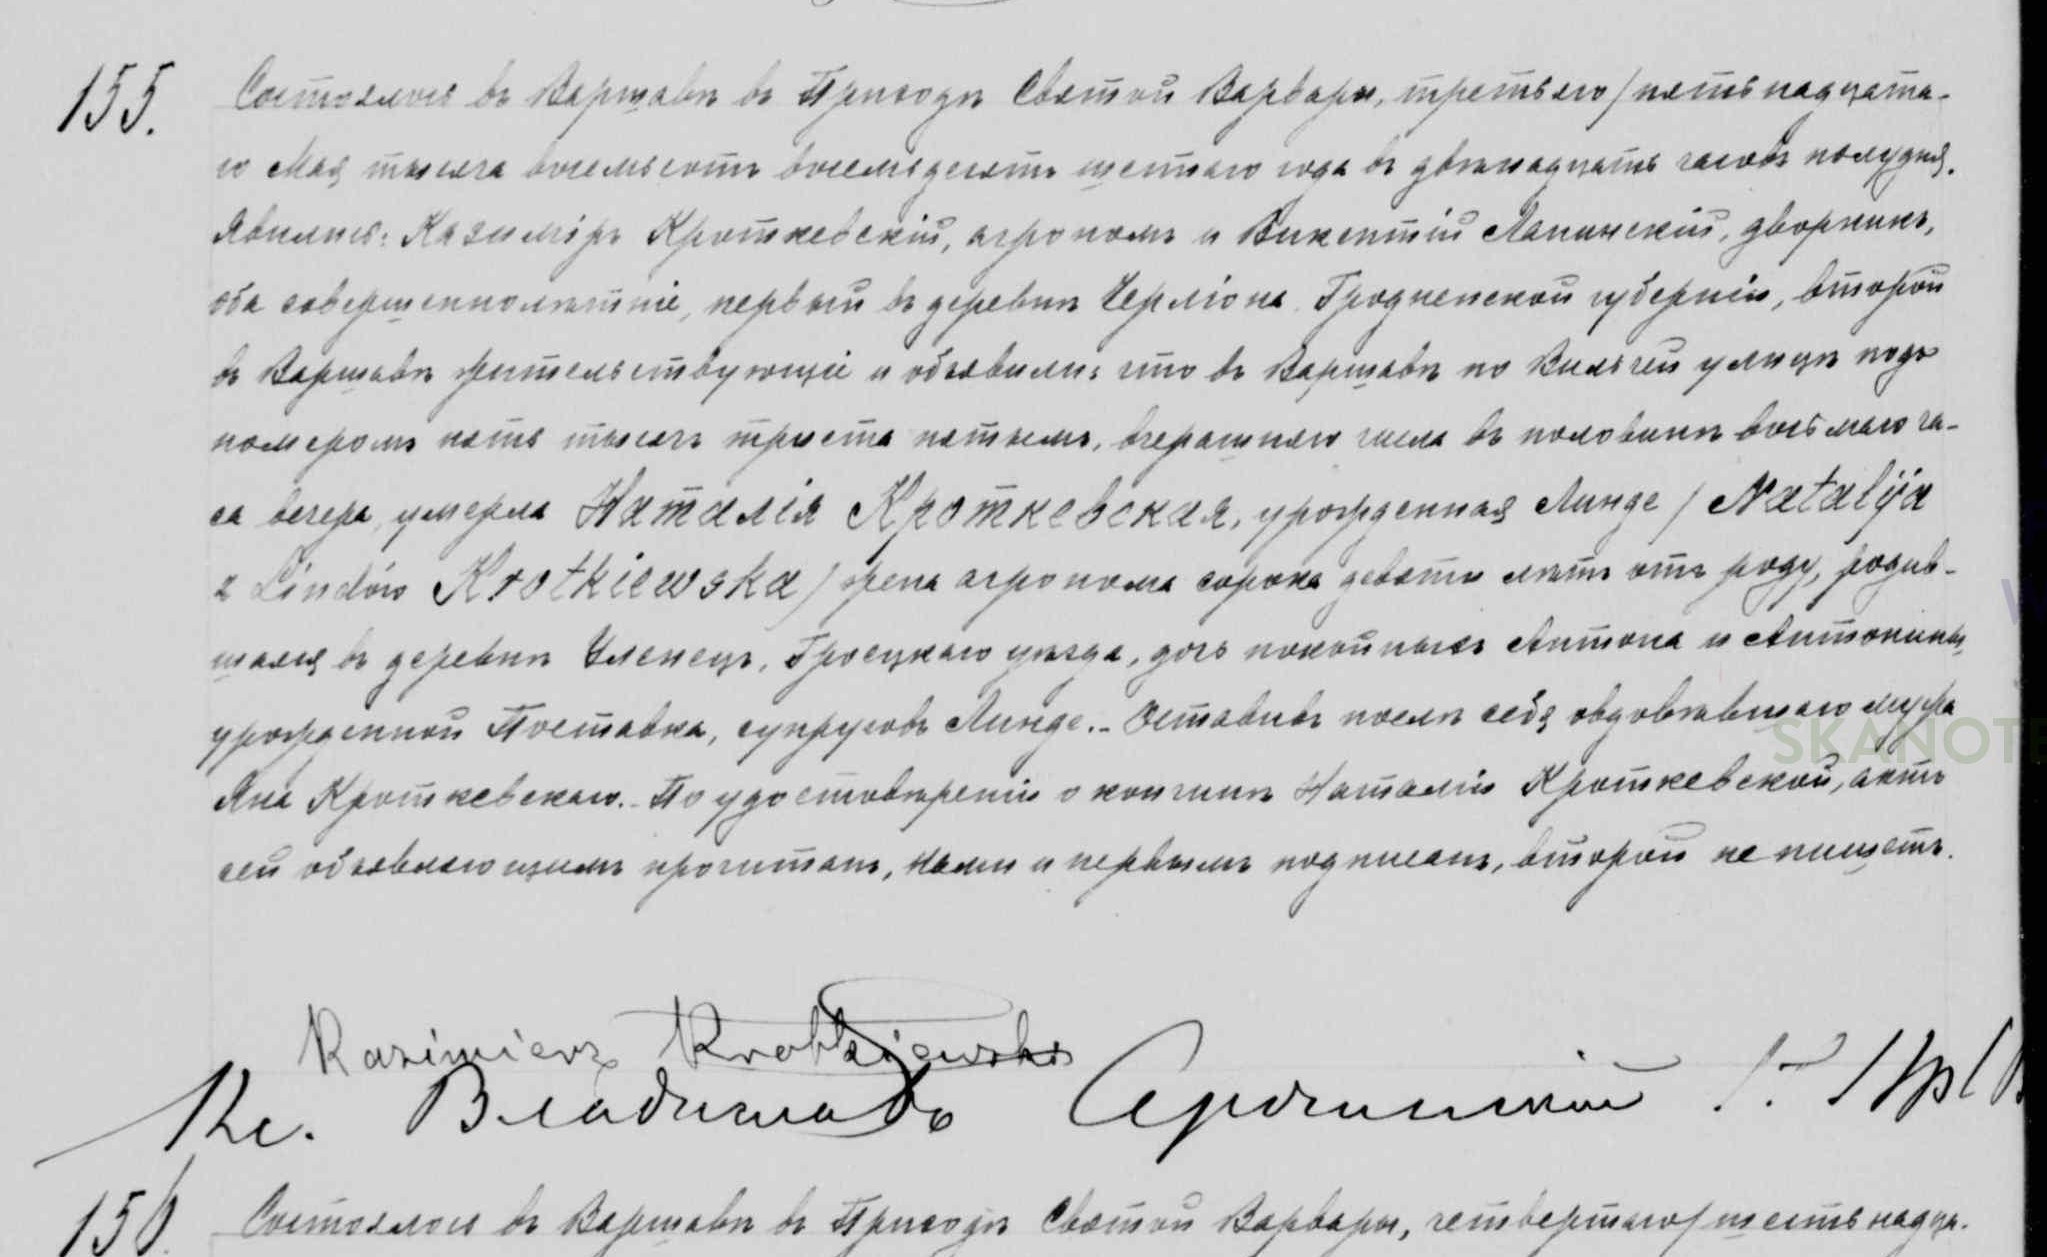 155.
Состоялось въ Варшавѣ въ Приходѣ Святой Варвары, третьяго / пятьнадцата-
го Мая тысяча восемьсотъ восемьдесятъ шестаго года въ двѣнадцать часовъ полудня.
Явились: Казиміръ Кроткевскій, агрономъ и Викентій Лапинскій, дворникъ,
оба совершеннолѣтніе, первый въ деревнѣ Черліона Гродненской губерніи, второй
въ Варшавѣ жительствующіе и объявили: что въ Варшавѣ по Вильчей улицѣ подъ
номеромъ пять тысячъ триста пятымъ, вчерашняго числа въ половинѣ восьмаго ча-
са вечера, умерла Наталія Кроткевская, урожденная Линде / Natalija
z Lindów Krotkiewska / жена агронома сорока девяти лѣтъ отъ роду, родив-
шаяся въ деревнѣ Уленецъ, Гроецкаго уѣзда, дочь покойныхъ Антона и Антонины,
урожденной Поставка, супруговъ Линде.- Оставивъ послѣ себя овдовѣвшаго мужа
Яна Кроткевскаго.- По удостовѣреніи о кончинѣ Наталіи Кроткевской, актъ
сей объявляющимъ прочитанъ, Нами и первымъ подписанъ, второй не пишетъ.
Kazimierz Krotkiewski
Кс. Владиславъ
156.
Состоялось въ Варшавѣ въ Приходѣ Святой Варвары, четвертаго / шестьнадца-
SKANOTE